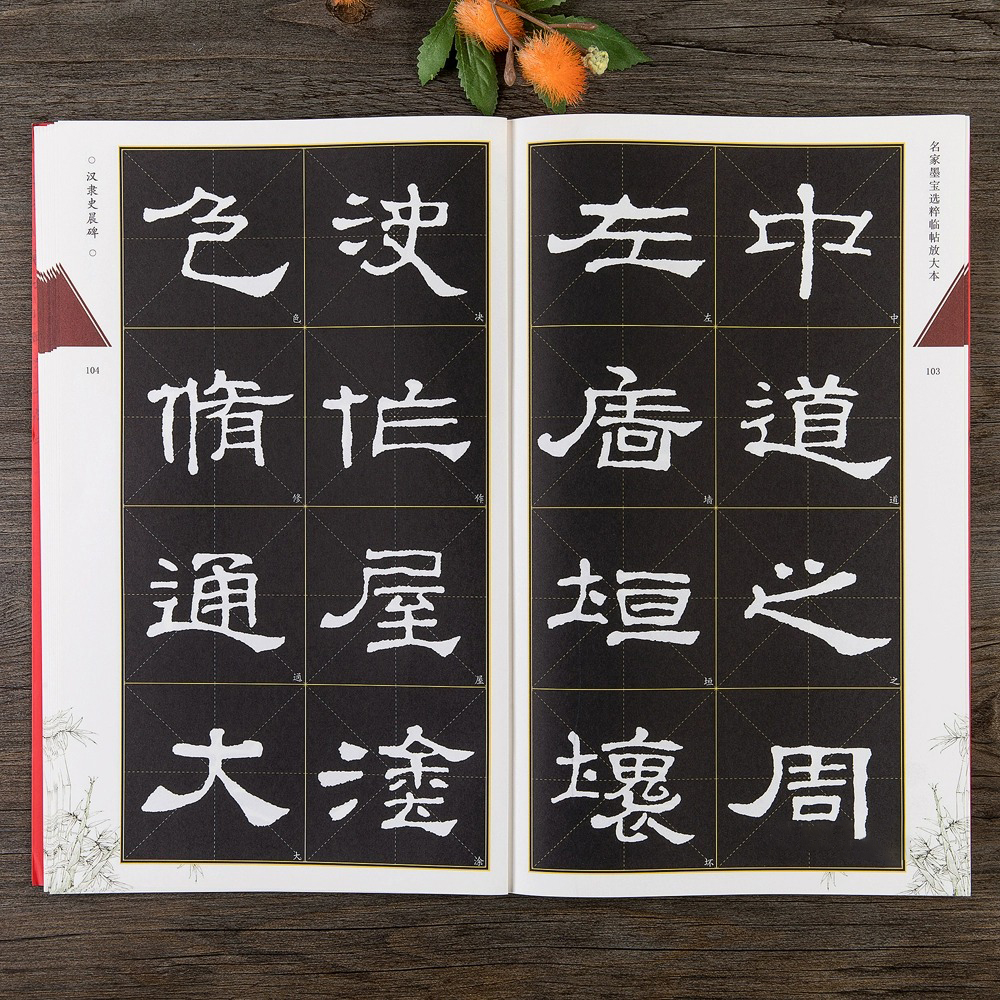 名家墨宝选粹临帖放大本
103
中道之周
中道之
左廧垣壞
左墙垣坏
決作屋塗
决作屋涂
色脩通大
色修通大
汉隶史晨碑
104